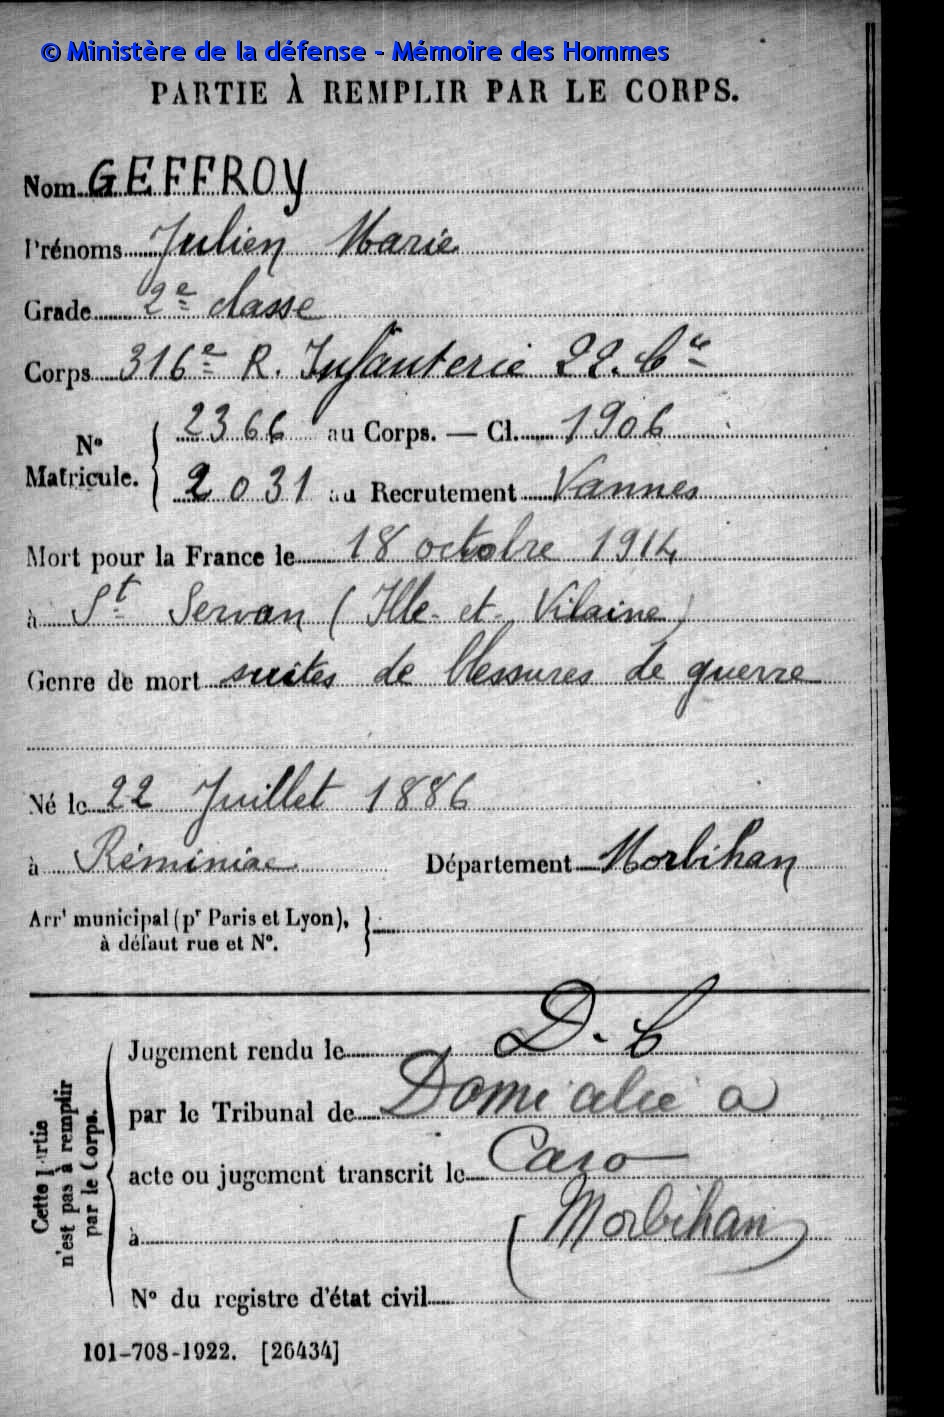 © Ministère de la défense - Mémoire des Hommes
PARTIE À REMPLIR PAR LE CORPS.
Nom GEFFROY
Prénoms Julien Marie
Grade 2e classe
Corps 316e R. Infanterie 22. Cie
N° Matricule. 2366 au Corps. — Cl. 1906
2031 au Recrutement Vannes
Mort pour la France le 18 octobre 1914
à St Servan (Ille-et-Vilaine)
Genre de mort suites de blessures de guerre
Né le 22 Juillet 1886
à Réminiac Département Morbihan
Arrt municipal (pr Paris et Lyon),
à défaut rue et N°.
Cette partie
n'est pas à remplir
par le Corps.
Jugement rendu le D. C
par le Tribunal de Domicilié à
acte ou jugement transcrit le Caro
à (Morbihan)
N° du registre d'état civil
101-708-1922. [26434]